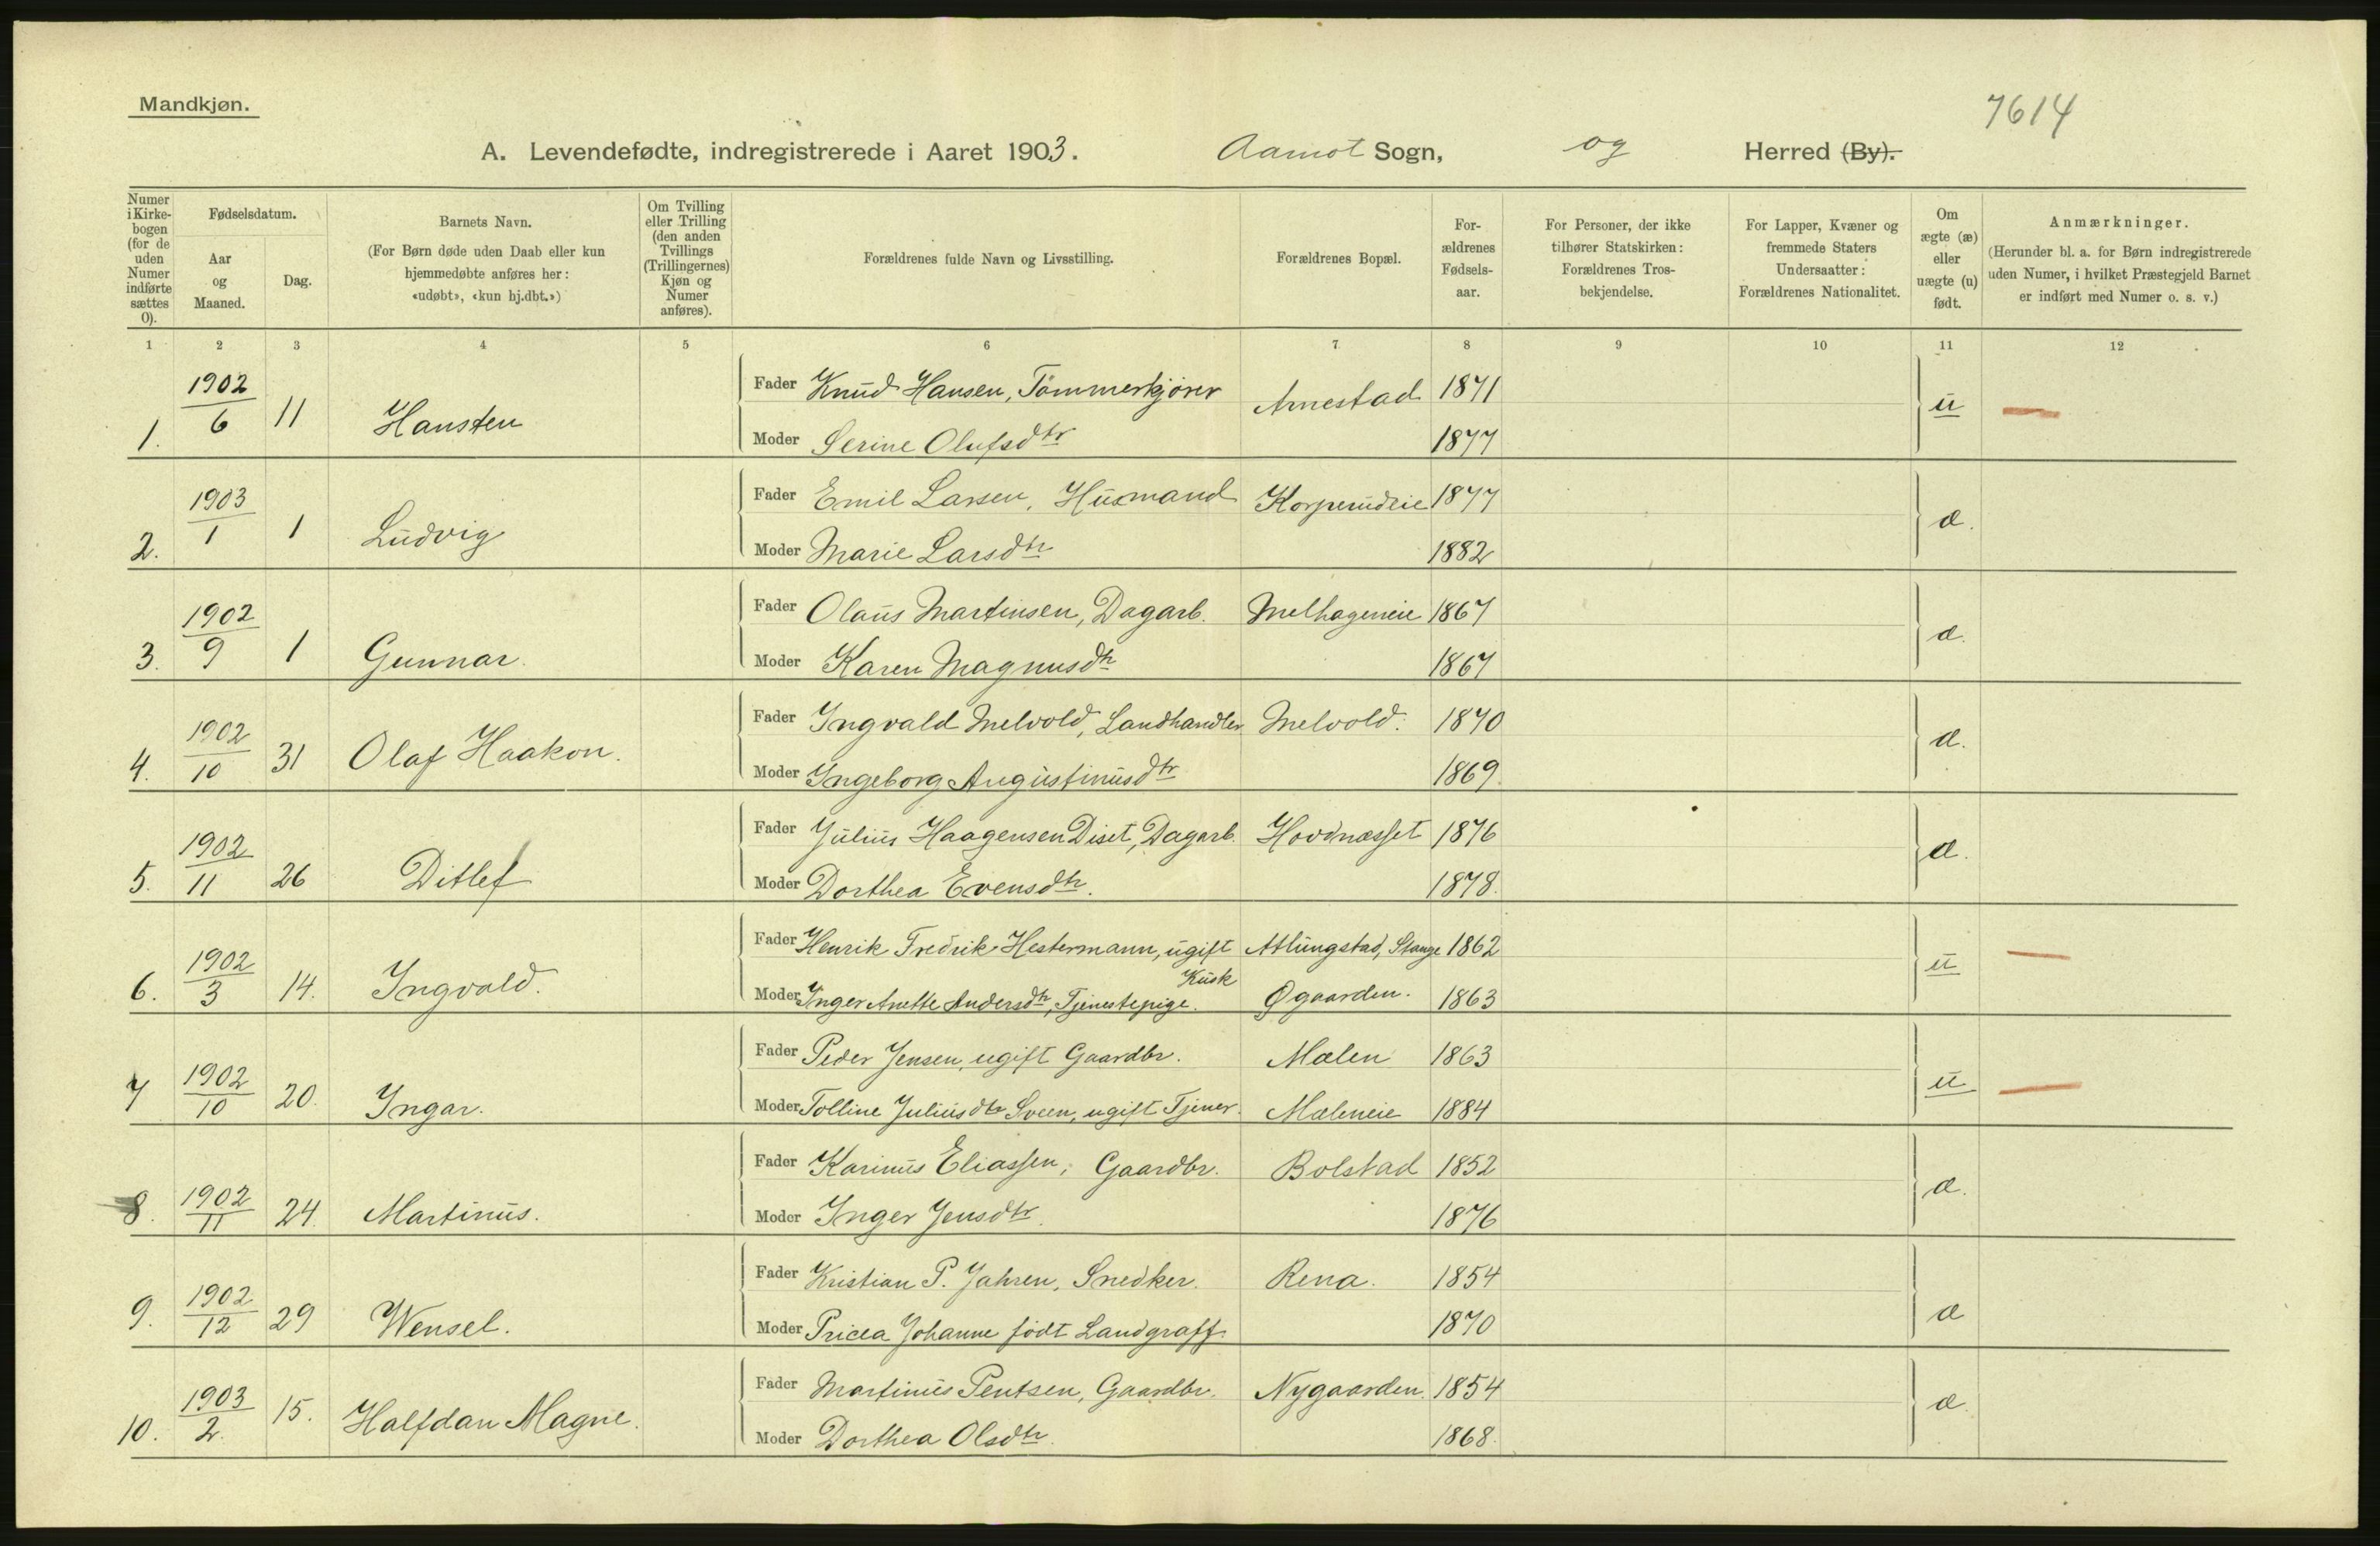 Mandkjøn.
7614
A. Levendefødte, indregistrerede i Aaret 1903. Aamot Sogn, og Herred (By).
Numer i Kirkebogen (for de uden Numer indførte sættes 0).
Fødselsdatum.
Aar og Maaned.
Dag.
Barnets Navn.
(For Børn døde uden Daab eller kun hjemmedøbte anføres her: «udøbt», «kun hj.dbt.»)
Om Tvilling eller Trilling (den anden Tvillings (Trillingernes) Kjøn og Numer anføres).
Forældrenes fulde Navn og Livsstilling.
Forældrenes Bopæl.
Forældrenes Fødselsaar.
For Personer, der ikke tilhører Statskirken: Forældrenes Trosbekjendelse.
For Lapper, Kvæner og fremmede Staters Undersaatter: Forældrenes Nationalitet.
Om ægte (æ) eller uægte (u) født.
Anmærkninger.
(Herunder bl. a. for Børn indregistrerede uden Numer, i hvilket Præstegjeld Barnet er indført med Numer o. s. v.)
1 2 3 4 5 6 7 8 9 10 11 12
1. 1902/6 11 Hansten Fader Knud Hansen, Tømmerkjører Arnestad 1871 u
Moder Serine Olufsdtr 1877
2. 1903/1 1 Ludvig Fader Emil Larsen, Husmand Korperudeie 1877 æ.
Moder Marie Larsdtr 1882
3. 1902/9 1 Gunnar. Fader Olaus Martinsen, Dagarb. Melhageneie 1867 æ.
Moder Karen Magnusdtr 1867
4. 1902/10 31 Olaf Haakon. Fader Ingvald Melvold, Landhandler Melvold. 1870 æ.
Moder Ingeborg Augustinusdtr 1869.
5. 1902/11 26 Ditlef Fader Julius Haagensen Diset, Dagarb. Hovdnæsset 1876 æ.
Moder Dorthea Evensdtr. 1878.
6. 1902/3 14. Ingvald. Fader Henrik Fredrik Hestermann, ugift Kusk Atlungstad, Stange 1862 u
Moder Inger Anette Andersdtr, Tjenestepige. Øgaarden. 1863
7 1902/10 20. Ingar. Fader Peder Jensen, ugift Gaardbr. Mælen 1863 u
Moder Tolline Juliusdtr Sveen, ugift Tjener. Mæleneie 1884
8. 1902/11 24. Martinus. Fader Karinus Eliassen, Gaardbr. Bolstad 1852 æ.
Moder Inger Jensdtr. 1876
9. 1902/12 29 Wensel. Fader Kristian P. Jahren, Snedker. Rena. 1854 æ
Moder Johanne født Landgraff. 1870
10. 1903/2. 15. Halfdan Magne. Fader Martinus Pentsen, Gaardbr. Nygaarden. 1854 æ.
Moder Dorthea Olsdtr. 1868.